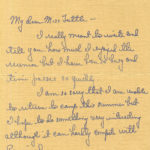 My dear Miss Tuttle —
I really meant to write and
tell you how much I enjoyed the
but I have been so busy and
time passes so quickly.
I am so sorry that I am unable
to return to camp this summer but
I hope to do something very interesting
although it can hardly compete with